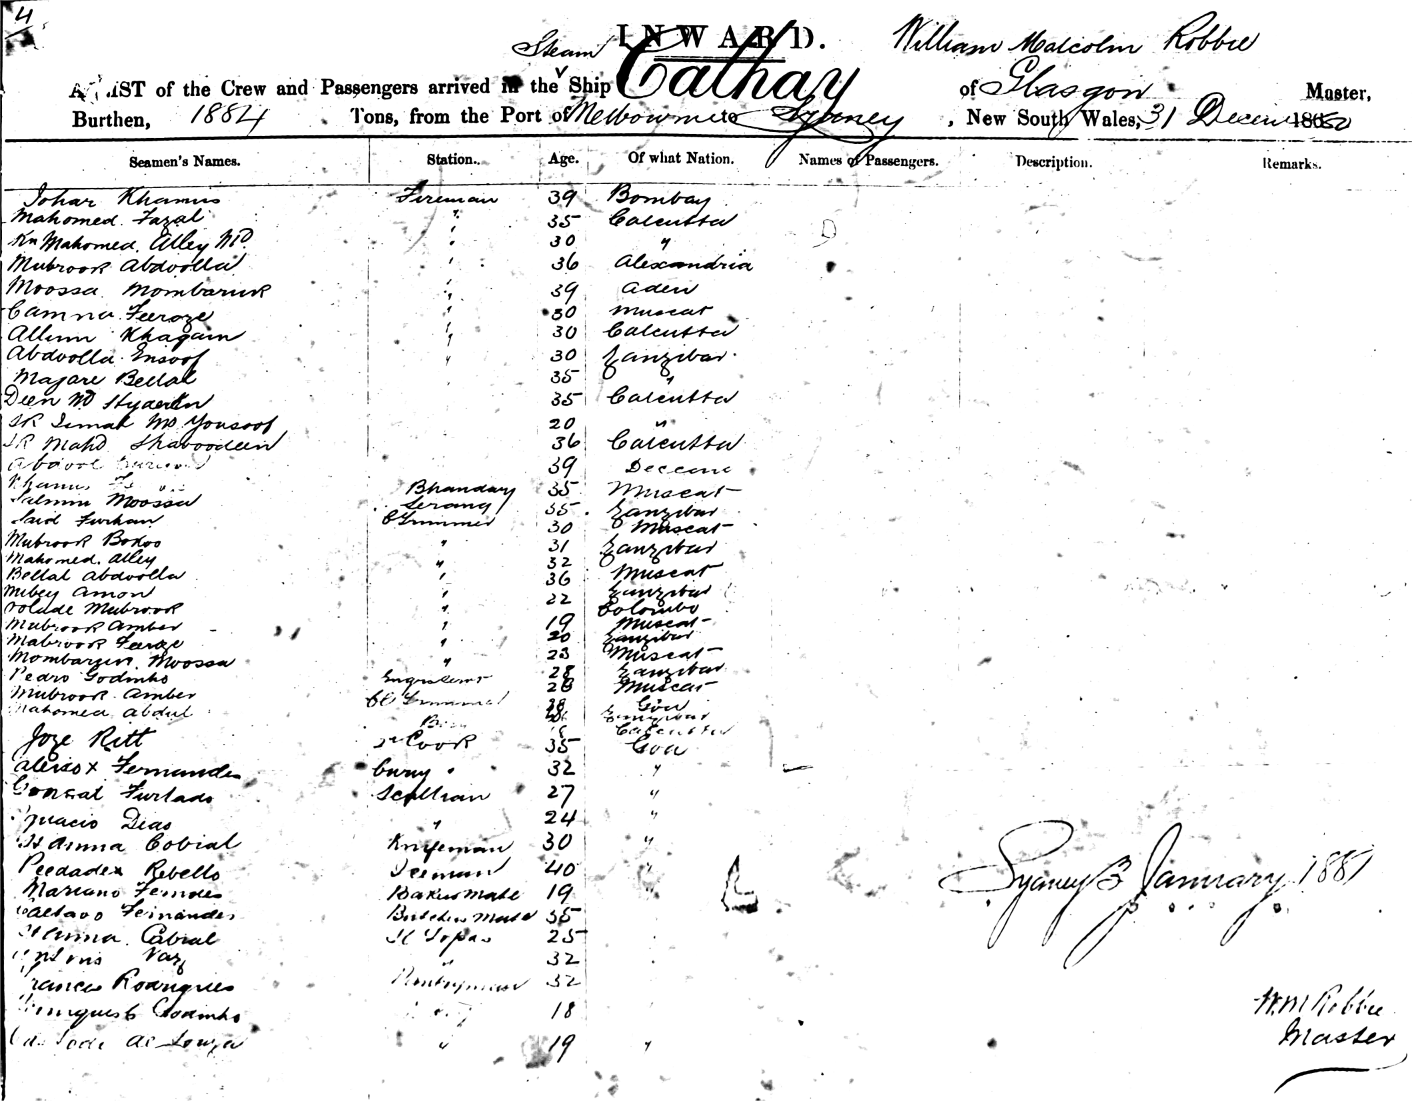 4
INWARD.
Steam
William Malcolm Robbie
A LIST of the Crew and Passengers arrived in the Ship Cathay of Glasgow Master,
Burthen, 1884 Tons, from the Port of Melbourne to Sydney, New South Wales, 31 Decem 1880
Seamen's Names. Station. Age. Of what Nation. Names of Passengers. Description. Remarks.
Johar Khamis Fireman 39 Bombay
Mahomed Fazal " 35 Calcutta
Mahomed Alley Md " 30 "
Mubrook Abdoolla " 36 Alexandria
Moossa Mombaruk " 39 Aden
Camna Feroze " 30 Muscat
Allum Khagam " 30 Calcutta
Abdoolla Ensoof " 30 Zanzibar
Majare Bellal 35 "
Deen Md Hyder 35 Calcutta
SK Ismal Md Yousoof 20 "
SK Mahd Shaboodeen 36 Calcutta
Abdool 39 Deccan
Khamis Bhandary 35 Muscat
Salmin Moossa Serang 35 Zanzibar
Said Furhan C Trimmer 30 Muscat
Mubrook Bokos " 31 Zanzibar
Mahomed Alley " 32 Muscat
Bellal Abdoolla " 36 Zanzibar
Mibey Amon " 22 Colombo
Mubrook " 19 Muscat
Mubrook Amber " 20 Zanzibar
Mabrook Feroze " 23 Muscat
Mombarzin Moossa " 28 Zanzibar
Pedro Godinho Engrs Servt 28 Muscat
Mubrook Amber Cl Trimmer Goa
Mahomed Abdul Zanzibar
Calcutta
Joze Ritt Cook 35 Goa
Aleixo x Fernandes Curry " 32 "
Gonsal Furtado Scullian 27 "
Ignacio Dias " 24 "
St Anna Cobral Knifeman 30 "
Peedade x Rebello Iceman 40 "
Mariano Ferndes Bakers Mate 19 "
Caetano Fernandes Butchers Mate 35
St Anna Cabral St Topas 25
Antonio Vaz " 32
Francis Rodrigues Pantryman 32
Godinho 18
de Souza " 19 "
Sydney 3 January 1881
W. M Robbie
Master